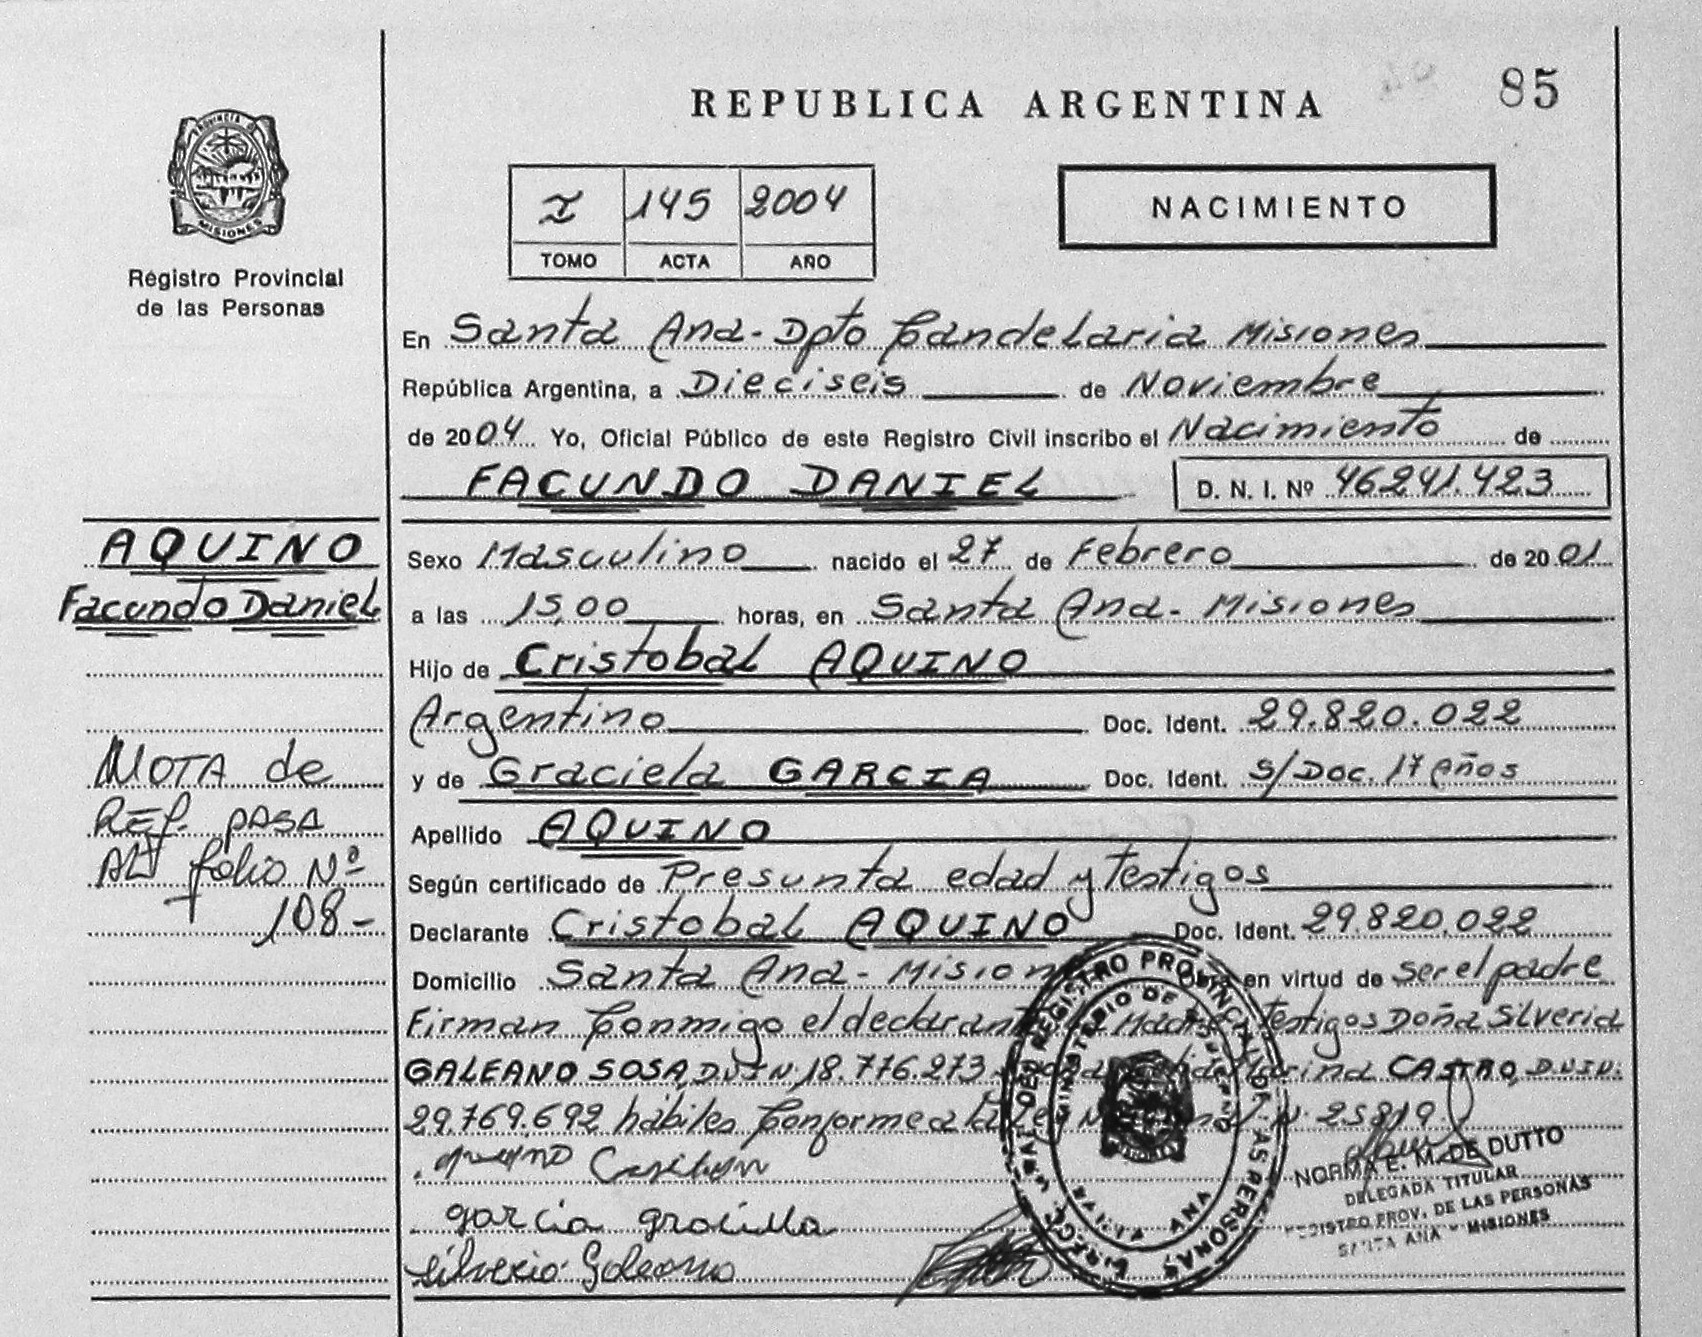 85
REPUBLICA ARGENTINA
PROVINCIA DE
MISIONES
Registro Provincial
de las Personas
I 145 2004
TOMO ACTA AÑO
NACIMIENTO
En Santa Ana - Dpto Candelaria Misiones
República Argentina, a Dieciseis de Noviembre
de 2004 Yo, Oficial Público de este Registro Civil inscribo el Nacimiento de
FACUNDO DANIEL D. N. I. Nº 46241.423
AQUINO
Facundo Daniel
Sexo Masculino nacido el 27 de Febrero de 2001
a las 15,00 horas, en Santa Ana - Misiones
Hijo de Cristobal AQUINO
Argentino Doc. Ident. 29.820.022
y de Graciela GARCIA Doc. Ident. S/Doc. 17 años
Apellido AQUINO
Según certificado de Presunta edad y Testigos
Declarante Cristobal AQUINO Doc. Ident. 29.820.022
Domicilio Santa Ana - Misiones en virtud de ser el padre
Firman Conmigo el declarante la Madre Testigos Doña Silveria
GALEANO SOSA, D.N.I.N. 18.776.273 Marina CASTRO, D.N.I.N.
29.769.692 hábiles Conforme a la Ley Nacional N. 25819
NOTA de
REF. PASA
AL folio Nº
108-
Aquino Cristobal
garcia graciela
silveria Galeano
REGISTRO PROVINCIAL DE LAS PERSONAS
MINISTERIO DE
SANTA ANA
NORMA E. M. DE DUTTO
DELEGADA TITULAR
REGISTRO PROV. DE LAS PERSONAS
SANTA ANA - MISIONES